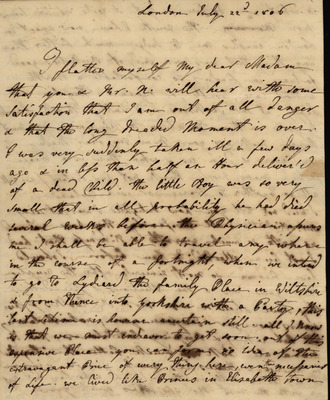 London July 22d 1806
I flatter myself My dear Madam
that you & Mr. N. will hear with some
Satisfaction that I am out of all danger
& that the long dreaded Moment is over.
I was very suddenly taken ill a few days
ago & in less than half an Hour deliver'd
of a dead Child. the little Boy was so very
small that in all probability he had died
several weeks before. the Physician assures
me I shall be able to travel any where
in the course of a fortnight when we intend
to go to Lydiard the family Place in Wiltshire
& from thence into Yorkshire with a Party, this
last scheme is however uncertain still - all I know
is that we must endeavor to get soon out of this
expensive Place. you can form no idea of the
extravagant Price of every thing here, even necessaries
of Life. we lived like Princes in Elizabeth Town